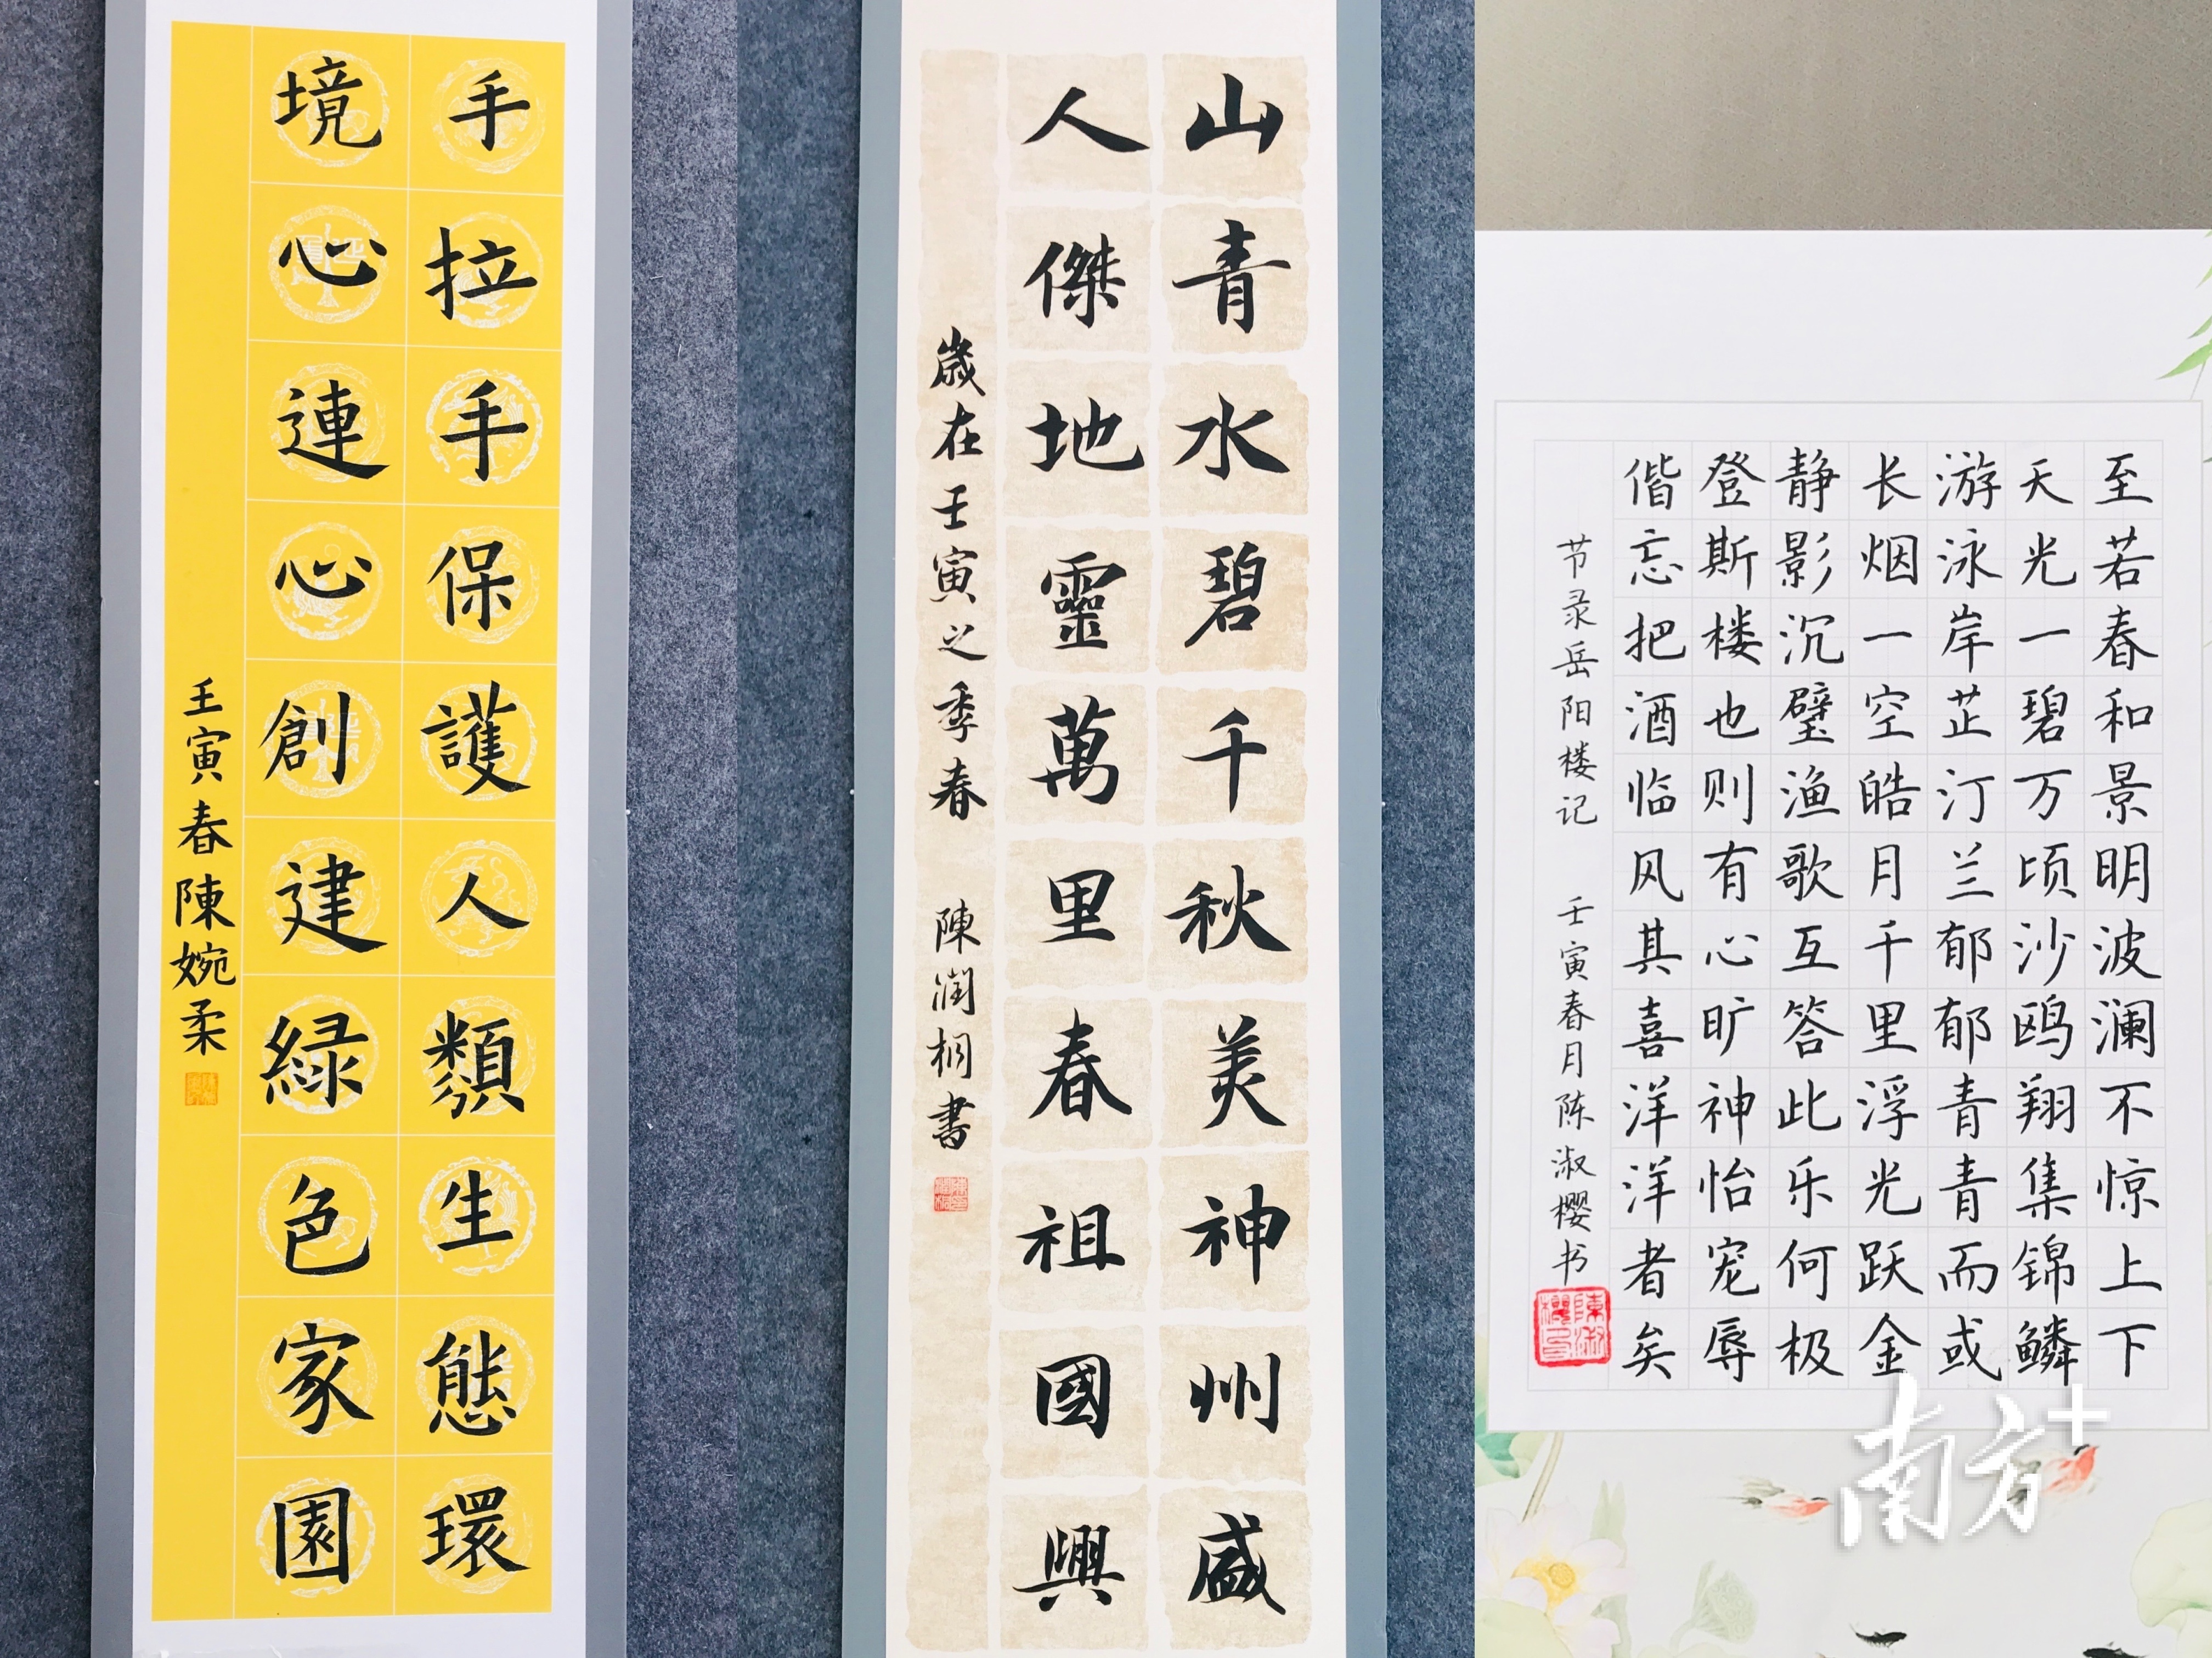 手拉手保護人類生態環
境心連心創建綠色家園
壬寅春陳婉柔
山青水碧千秋美神州盛
人傑地靈萬里春祖國興
歲在壬寅之季春 陳潤桐書
至若春和景明波澜不惊上下
天光一碧万顷沙鸥翔集锦鳞
游泳岸芷汀兰郁郁青青而或
长烟一空皓月千里浮光跃金
静影沉璧渔歌互答此乐何极
登斯楼也则有心旷神怡宠辱
偕忘把酒临风其喜洋洋者矣
节录岳阳楼记 壬寅春月陈淑樱书
陳淑櫻印
南方+